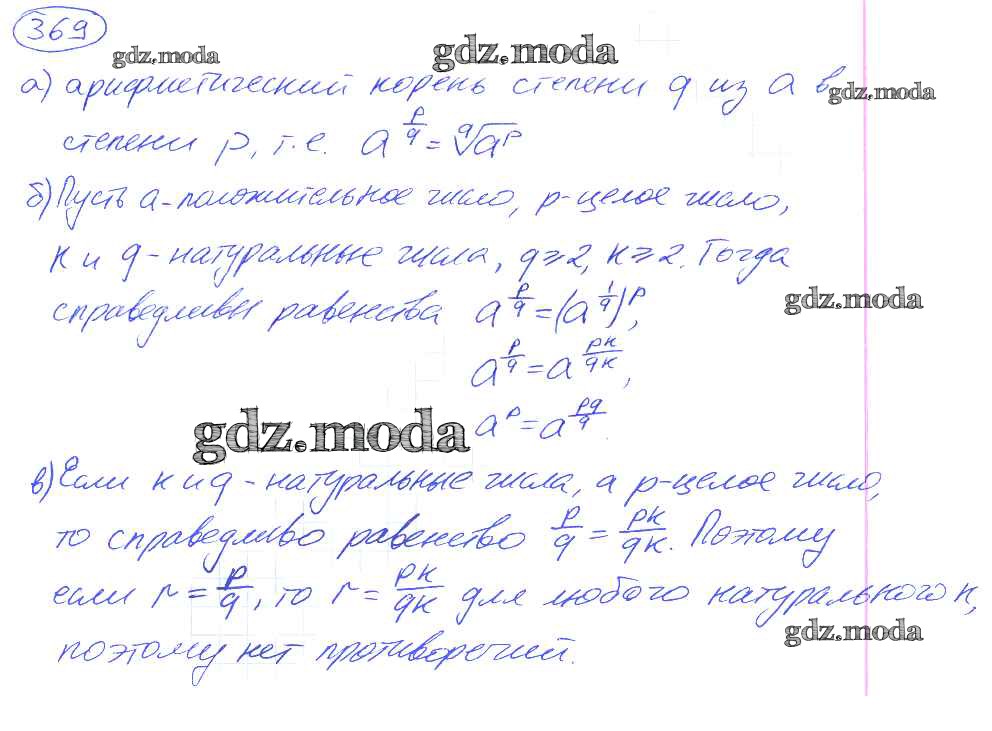 369
gdz.moda gdz.moda
а) арифметический корень степени q из a в gdz.moda
степени p, т.е. a^(p/q) = ^q√(a^p)
б) Пусть a - положительное число, p - целое число,
к и q - натуральные числа, q ⩾ 2, к ⩾ 2. Тогда
gdz.moda
справедливы равенства a^(p/q) = (a^(1/q))^p,
a^(p/q) = a^(pк/qк),
gdz.moda a^p = a^(pq/q).
в) Если к и q - натуральные числа, а p - целое число,
то справедливо равенство p/q = pк/qк. Поэтому
если r = p/q, то r = pк/qк для любого натурального к,
gdz.moda
поэтому нет противоречий.